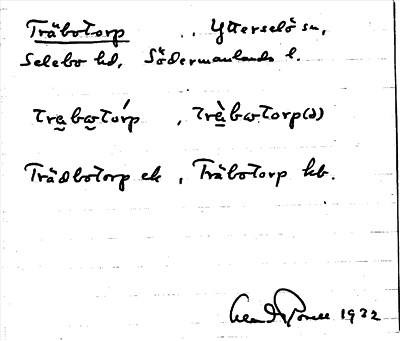 Träbotorp . . Ytterselö sn,
Selebo hd, Södermanlands l.
trabωtórp , tràbωtorp(ə)
Trädbotorp ek , Träbotorp kb.
1932